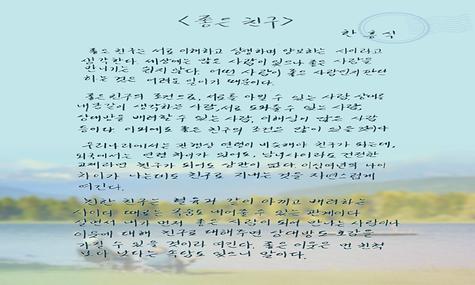 <좋은 친구>
한 흥 식
좋은 친구는 서로 이해하고 실행하며 양보하는 사이라고
생각한다. 세상에는 많은 사람이 있으나 좋은 사람을
만나기는 쉽지 않다. 어떤 사람이 좋은 사람인지 판단
하는 것은 어려운 일이기 때문이다.
좋은 친구의 조건으로, 서로를 아낄 수 있는 사람, 상대을
내 몸같이 생각하는 사람, 서로 도와줄 수 있는 사람,
상대방을 배려할 수 있는 사람, 이해심이 많은 사람
등이다. 이외에도 좋은 친구의 조건은 많이 있을 것이다
우리나라에서는 관행상 연령이 비슷해야 친구가 되는데,
외국에서는 연령 차이가 있어도, 남녀사이라도 건전한
교제라면 친구가 되어도 상관이 없다. 이십여년의 나이
차이가 나는데도 친구로 지내는 것을 자연스럽게
여긴다.
친구는 같이 아끼고 배려하는
사이다 때로는 목숨도 내어줄 수 있는 관계이다
살면서 내가 먼저 좋은 사람이 되어 만나는 사람이나
이웃에 대해 친구로 대해주면 상대방도 호감을
가질 수 있을 것이라 여긴다. 좋은 이웃은 먼 친척
보다 낫다는 속담도 있으니 말이다.